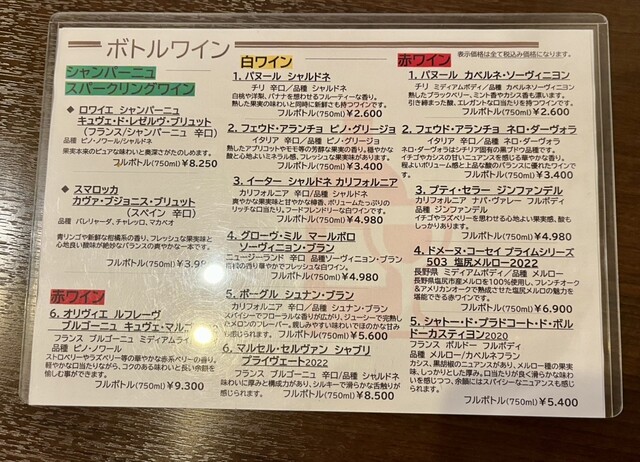 ボトルワイン
シャンパーニュ
スパークリングワイン
◆ ロワイエ シャンパーニュ
キュヴェ・ド・レゼルヴ・ブリュット
(フランス/シャンパーニュ 辛口)
品種 ピノ・ノワール/シャルドネ
果実本来のピュアな味わいと奥深さがたのしめます。
フルボトル(750ml)¥8.250
◆ スマロッカ
カヴァ・ブジョニス・ブリュット
(スペイン 辛口)
品種 パレリャーダ、チャレッロ、マカベオ
青リンゴや新鮮な柑橘系の香り。フレッシュな果実味と
心地良い酸味が絶妙なバランスの爽やかな一本です。
フルボトル(750ml)¥3.98
赤ワイン
6. オリヴィエ ルフレーヴ
ブルゴーニュ キュヴェ・マル
フランス ブルゴーニュ ミディアム
品種 ピノ・ノワール
ストロベリーやラズベリー等の華やかな赤系ベリーの香り。
軽やかな口当たりながら、コクのある味わいと長い余韻を
愉しむ事ができます。
フルボトル(750ml)¥9.300
白ワイン
1. パヌール シャルドネ
チリ 辛口/品種 シャルドネ
白桃や洋梨、バナナを思わせるフルーティーな香り。
熟した果実の味わいと同時に新鮮さも持つワインです。
フルボトル(750ml)¥2.600
2. フェウド・アランチョ ピノ・グリージョ
イタリア 辛口/品種 ピノ・グリージョ
熟したアプリコットやモモ等の芳醇な果実の香り。軽やかな
酸と心地よいミネラル感、フレッシュな果実味があります。
フルボトル(750ml)¥3.400
3. イーター シャルドネ カリフォルニア
カリフォルニア 辛口/品種 シャルドネ
爽やかな果実味と甘やかな樽香、ボリュームたっぷりの
リッチな口当たり。フードフレンドリーな白ワインです。
フルボトル(750ml)¥4.980
4. グローヴ・ミル マールボロ
ソーヴィニヨン・ブラン
ニュージーランド 辛口/品種ソーヴィニヨン・ブラン
柑橘の香り華やかでフレッシュな白ワイン。
フルボトル(750ml)¥4.980
5. ボーグル シュナン・ブラン
カリフォルニア 辛口/品種 シュナン・ブラン
スパイシーでフローラルな香りが広がり、ジューシーで完熟し
たメロンのフレーバー。親しみやすい味わいでほのかな甘み
が感じられます。 フルボトル(750ml)¥5.600
6. マルセル・セルヴァン シャブリ
プライヴェート2022
フランス ブルゴーニュ 辛口/品種 シャルドネ
味わいに厚みと構成力があり、シルキーで滑らかな舌触りが
感じられます。 フルボトル(750ml)¥8.500
表示価格は全て税込み価格になります。
赤ワイン
1. パヌール カベルネ・ソーヴィニヨン
チリ ミディアムボディ/品種 カベルネソーヴィニヨン
熟したブラックベリー、ミント香やカシス香も漂います。
引き締まった酸、エレガントな口当たりを持つワインです。
フルボトル(750ml)¥2.600
2. フェウド・アランチョ ネロ・ダーヴォラ
イタリア ミディアムボディ/品種 ネロ・ダーヴォラ
ネロ・ダーヴォラはシチリア固有の黒ブドウ品種です。
イチゴやカシスの甘いニュアンスを感じる華やかな香り。
程よいボリューム感と上品な酸のバランスに優れたワイン
です。 フルボトル(750ml)¥3.400
3. プティ・セラー ジンファンデル
カリフォルニア ナパ・ヴァレー フルボディ
品種 ジンファンデル
イチゴやラズベリーを思わせる心地よい果実感、酸も
しっかりあります。
フルボトル(750ml)¥4.980
4. ドメーヌ・コーセイ プライムシリーズ
503 塩尻メルロー2022
長野県 ミディアムボディ/品種 メルロー
長野県塩尻市産メルローを100%使用し、フレンチオーク
&アメリカンオークで熟成させた塩尻メルロの魅力を
堪能できる赤ワイン。
フルボトル(750ml)¥6.900
5. シャトー・ド・プラドコート・ド・ボル
ドーカスティヨン2020
フランス ボルドー フルボディ
品種 メルロー/カベルネフラン
カシス、黒胡椒のニュアンスがあり、メルロー種の果実
味、しっかりとした厚み。口当たりが良く滑らかな味わ
いを感じつつ、余韻にはスパイシーなニュアンスも感じ
られます。 フルボトル(750ml)¥5.400